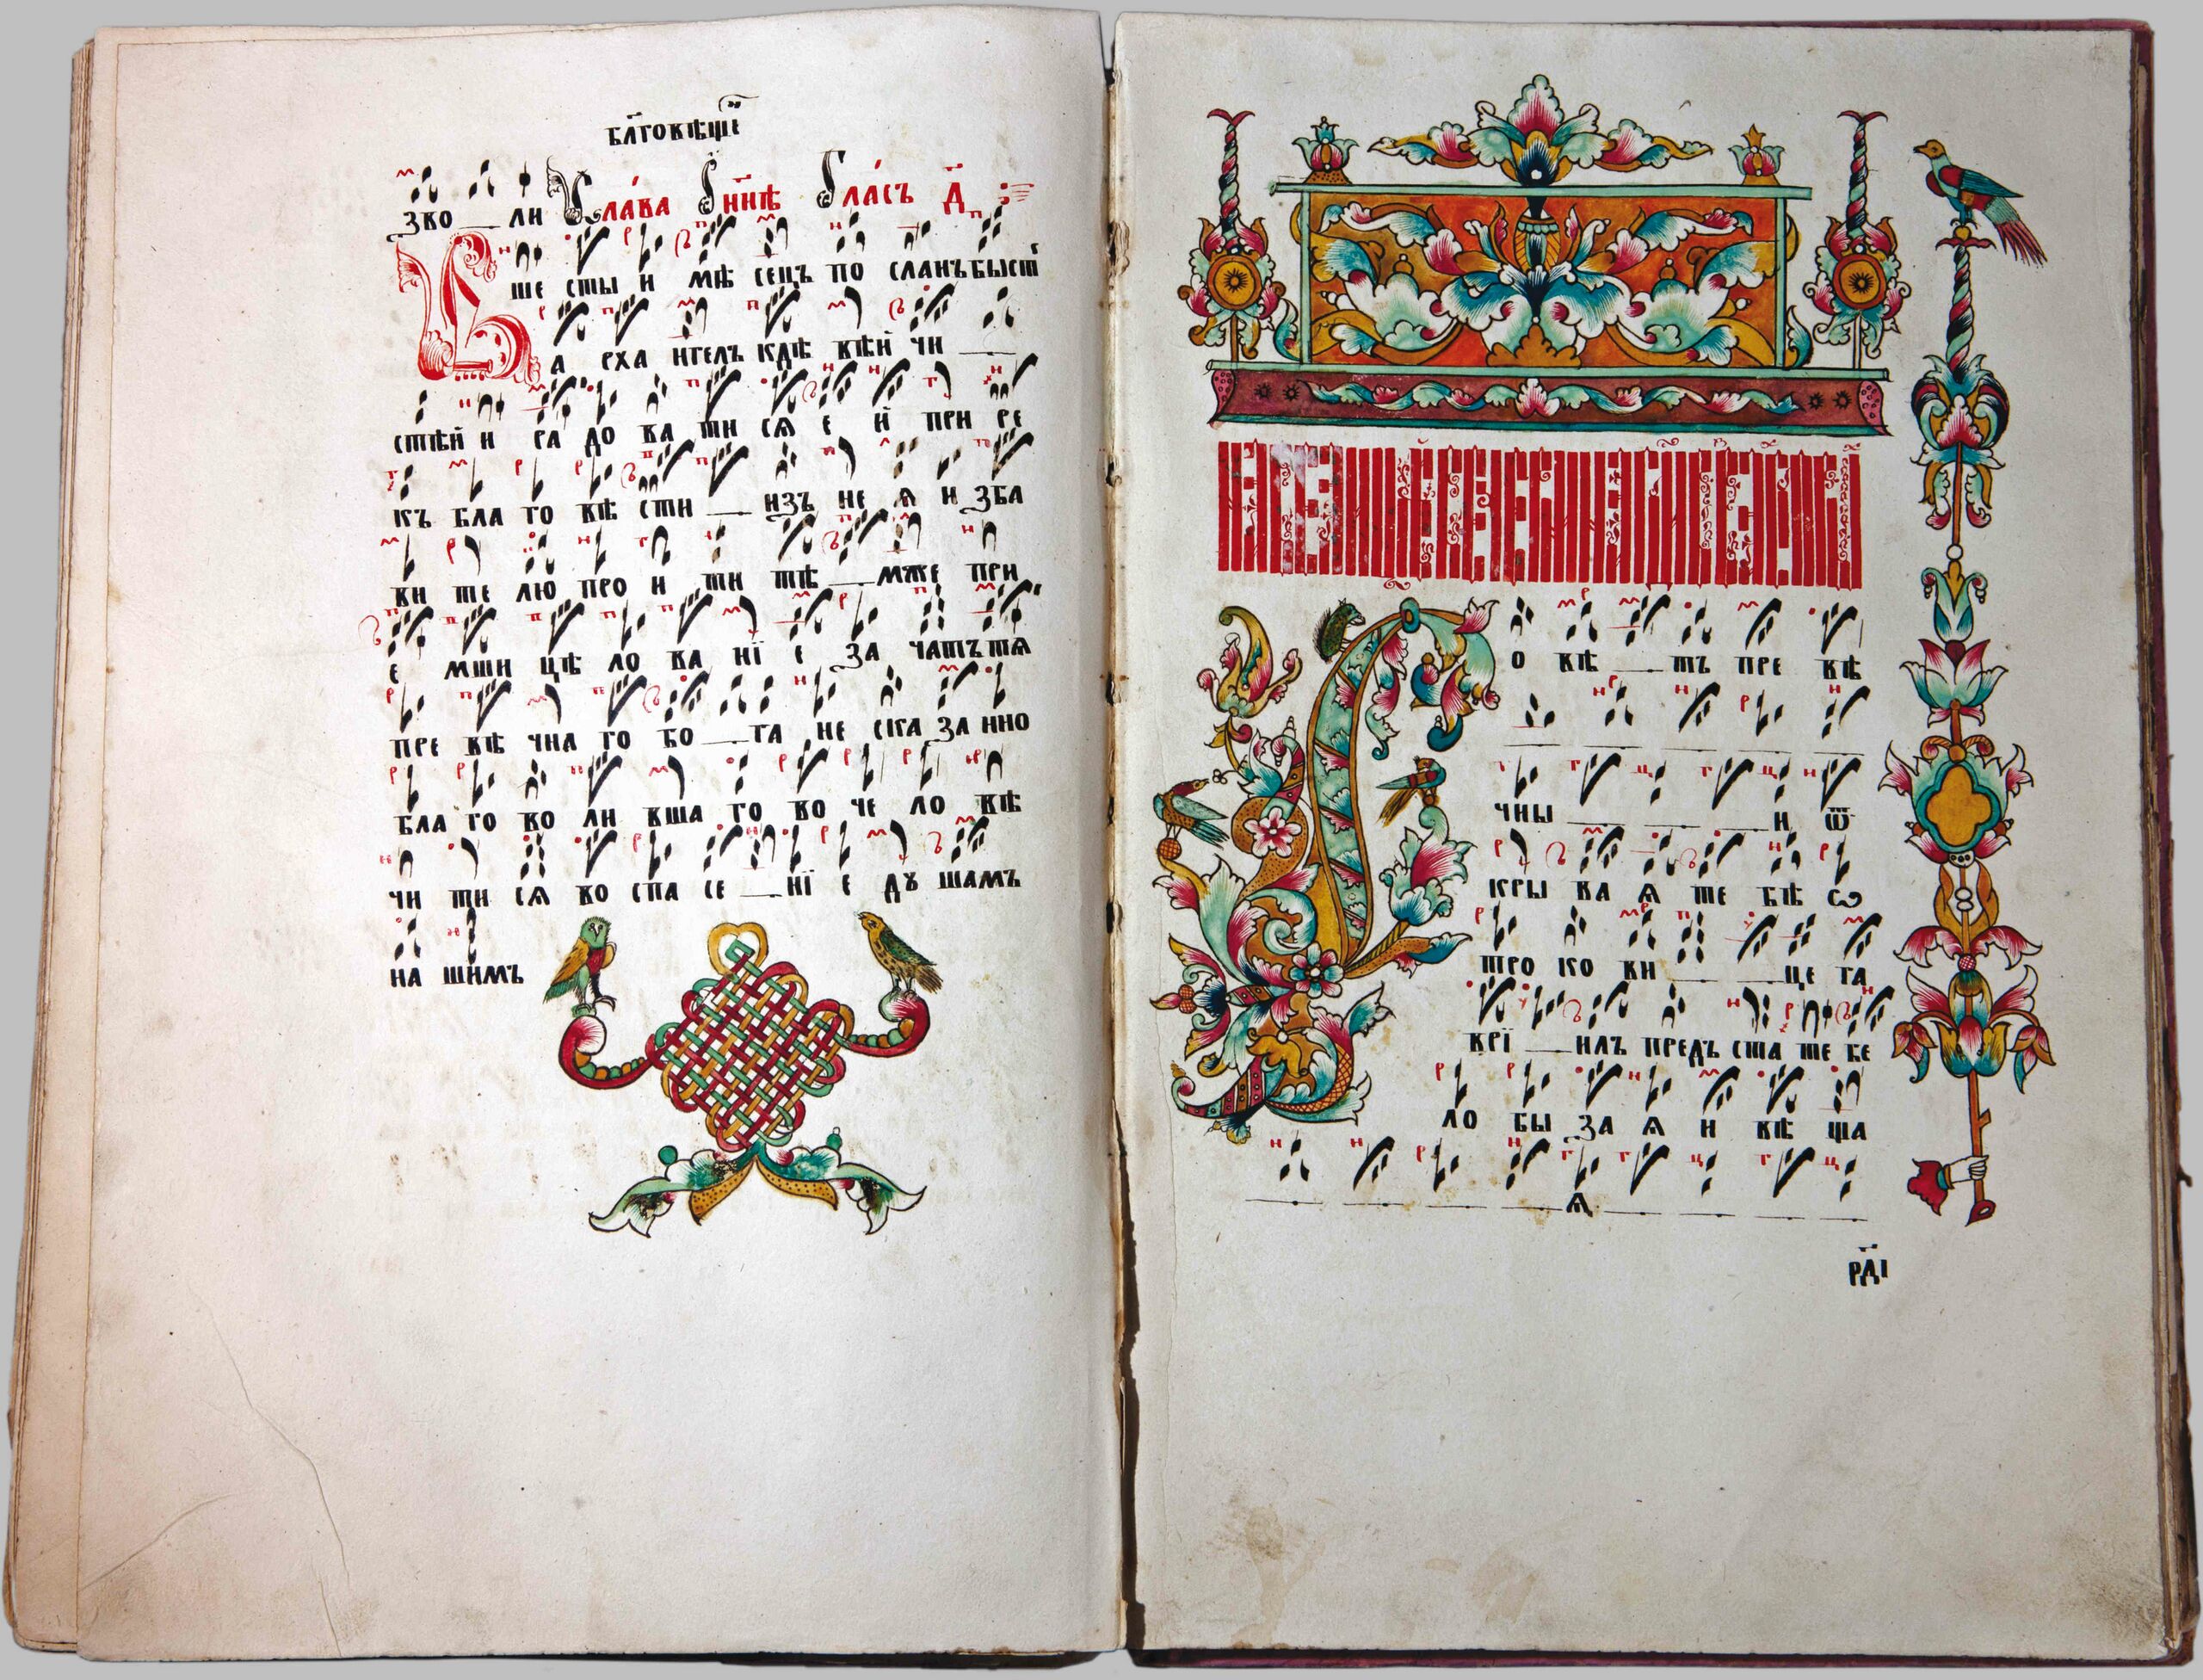 БЛГОВѢЩЕ
ЗВО ЛИ СЛАВА И НН҃Ѣ ГЛАСЪ Д҃
ВЪ ШЕ СТЫ И МѢ СЕЦЪ ПО СЛАНЪ БЫСТЬ
А РХА НГЕЛЪ КДѢ ВѢЙ ЧИ
СТѢЙ И РА ДО ВА ТИ СѦ Е Й ПРИ РЕ
КЪ БЛА ГО ВѢ СТИ ИЗЪ НЕ Ѧ И ЗБА
ВИ ТЕ ЛЮ ПРО И ТИ ТѢ МЖЕ ПРИ
Е МШИ ЦѢ ЛО ВА НІ Е ЗА ЧАТЪ ТѦ
ПРЕ ВѢ ЧНА ГО БО ГА НЕ СКА ЗА ННО
БЛА ГО ВО ЛИ ВША ГО ВО ЧЕ ЛО ВѢ
ЧИ ТИ СѦ ВО СПА СЕ НІ Е ДУ ШАМЪ
НА ШИМЪ
СО ВѢ ТЪ ПРЕ ВѢ
ЧНЫ И Ѿ
КРЫ ВА Ѧ ТЕ БѢ Ѡ
ТРО КО ВИ ЦЕ ГА
ВРІ ИЛЪ ПРЕДЪ СТА ТЕ БЕ
ЛО БЫ ЗА Ѧ И ВѢ ЩА
Ѧ
РД҃І